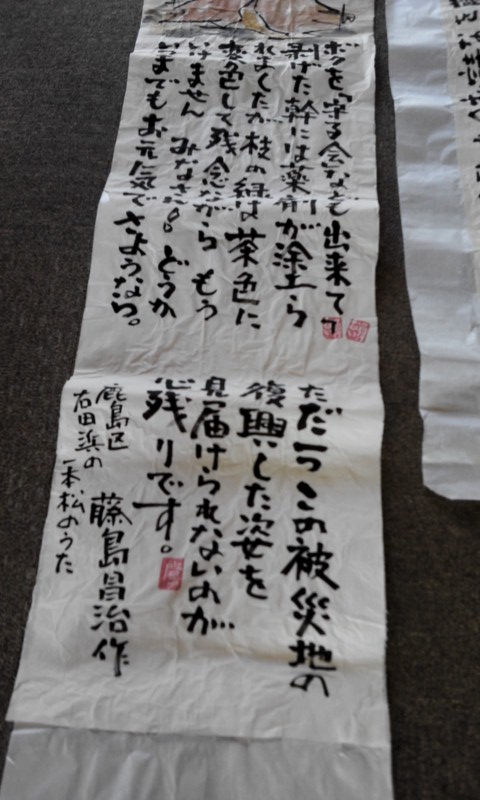 ボクを守る会なども出来て、
剥げた幹には薬剤が塗ら
れましたが枝の緑は茶色に
変色して残念ながらもう
いけません みなさん どうか
いつまでもお元気でさようなら。
ただ一つこの被災地の
復興した姿を
見届けられないのが
心残りです。
鹿島区
右田浜の
一本松のうた
藤島昌治作